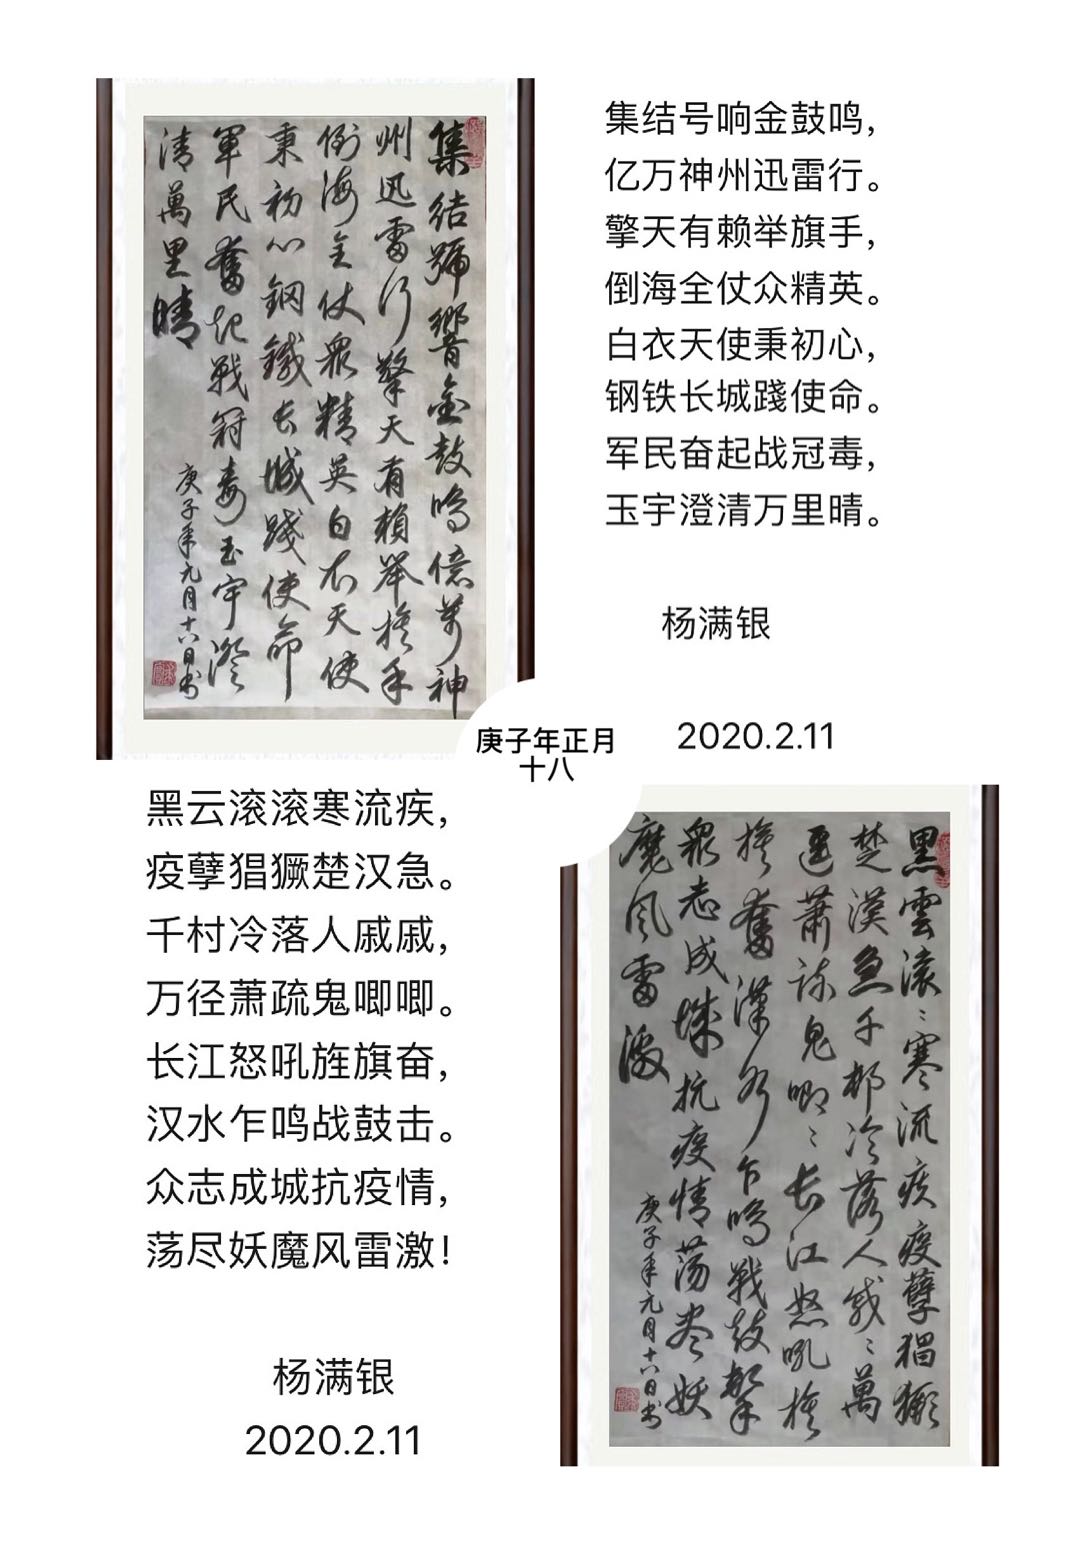 集結號響金鼓鳴億萬神
州迅雷行擎天有賴舉旗手
倒海全仗眾精英白衣天使
秉初心鋼鐵长城踐使命
軍民奮起戰冠毒玉宇澄
清萬里晴
庚子年元月十八日书
集结号响金鼓鸣，
亿万神州迅雷行。
擎天有赖举旗手，
倒海全仗众精英。
白衣天使秉初心，
钢铁长城踐使命。
军民奋起战冠毒，
玉宇澄清万里晴。
杨满银
2020.2.11
庚子年正月
十八
黑云滚滚寒流疾，
疫孽猖獗楚汉急。
千村冷落人戚戚，
万径萧疏鬼唧唧。
长江怒吼旌旗奋，
汉水乍鸣战鼓击。
众志成城抗疫情，
荡尽妖魔风雷激！
杨满银
2020.2.11
黑雲滚〻寒流疾疫孽猖獗
楚漢急千邨冷落人戚〻萬
逕蕭疏鬼唧〻长江怒吼旌
旗奮漢水乍鳴戰鼓擊
眾志成城抗疫情蕩尽妖
魔风雷激
庚子年元月十八日书